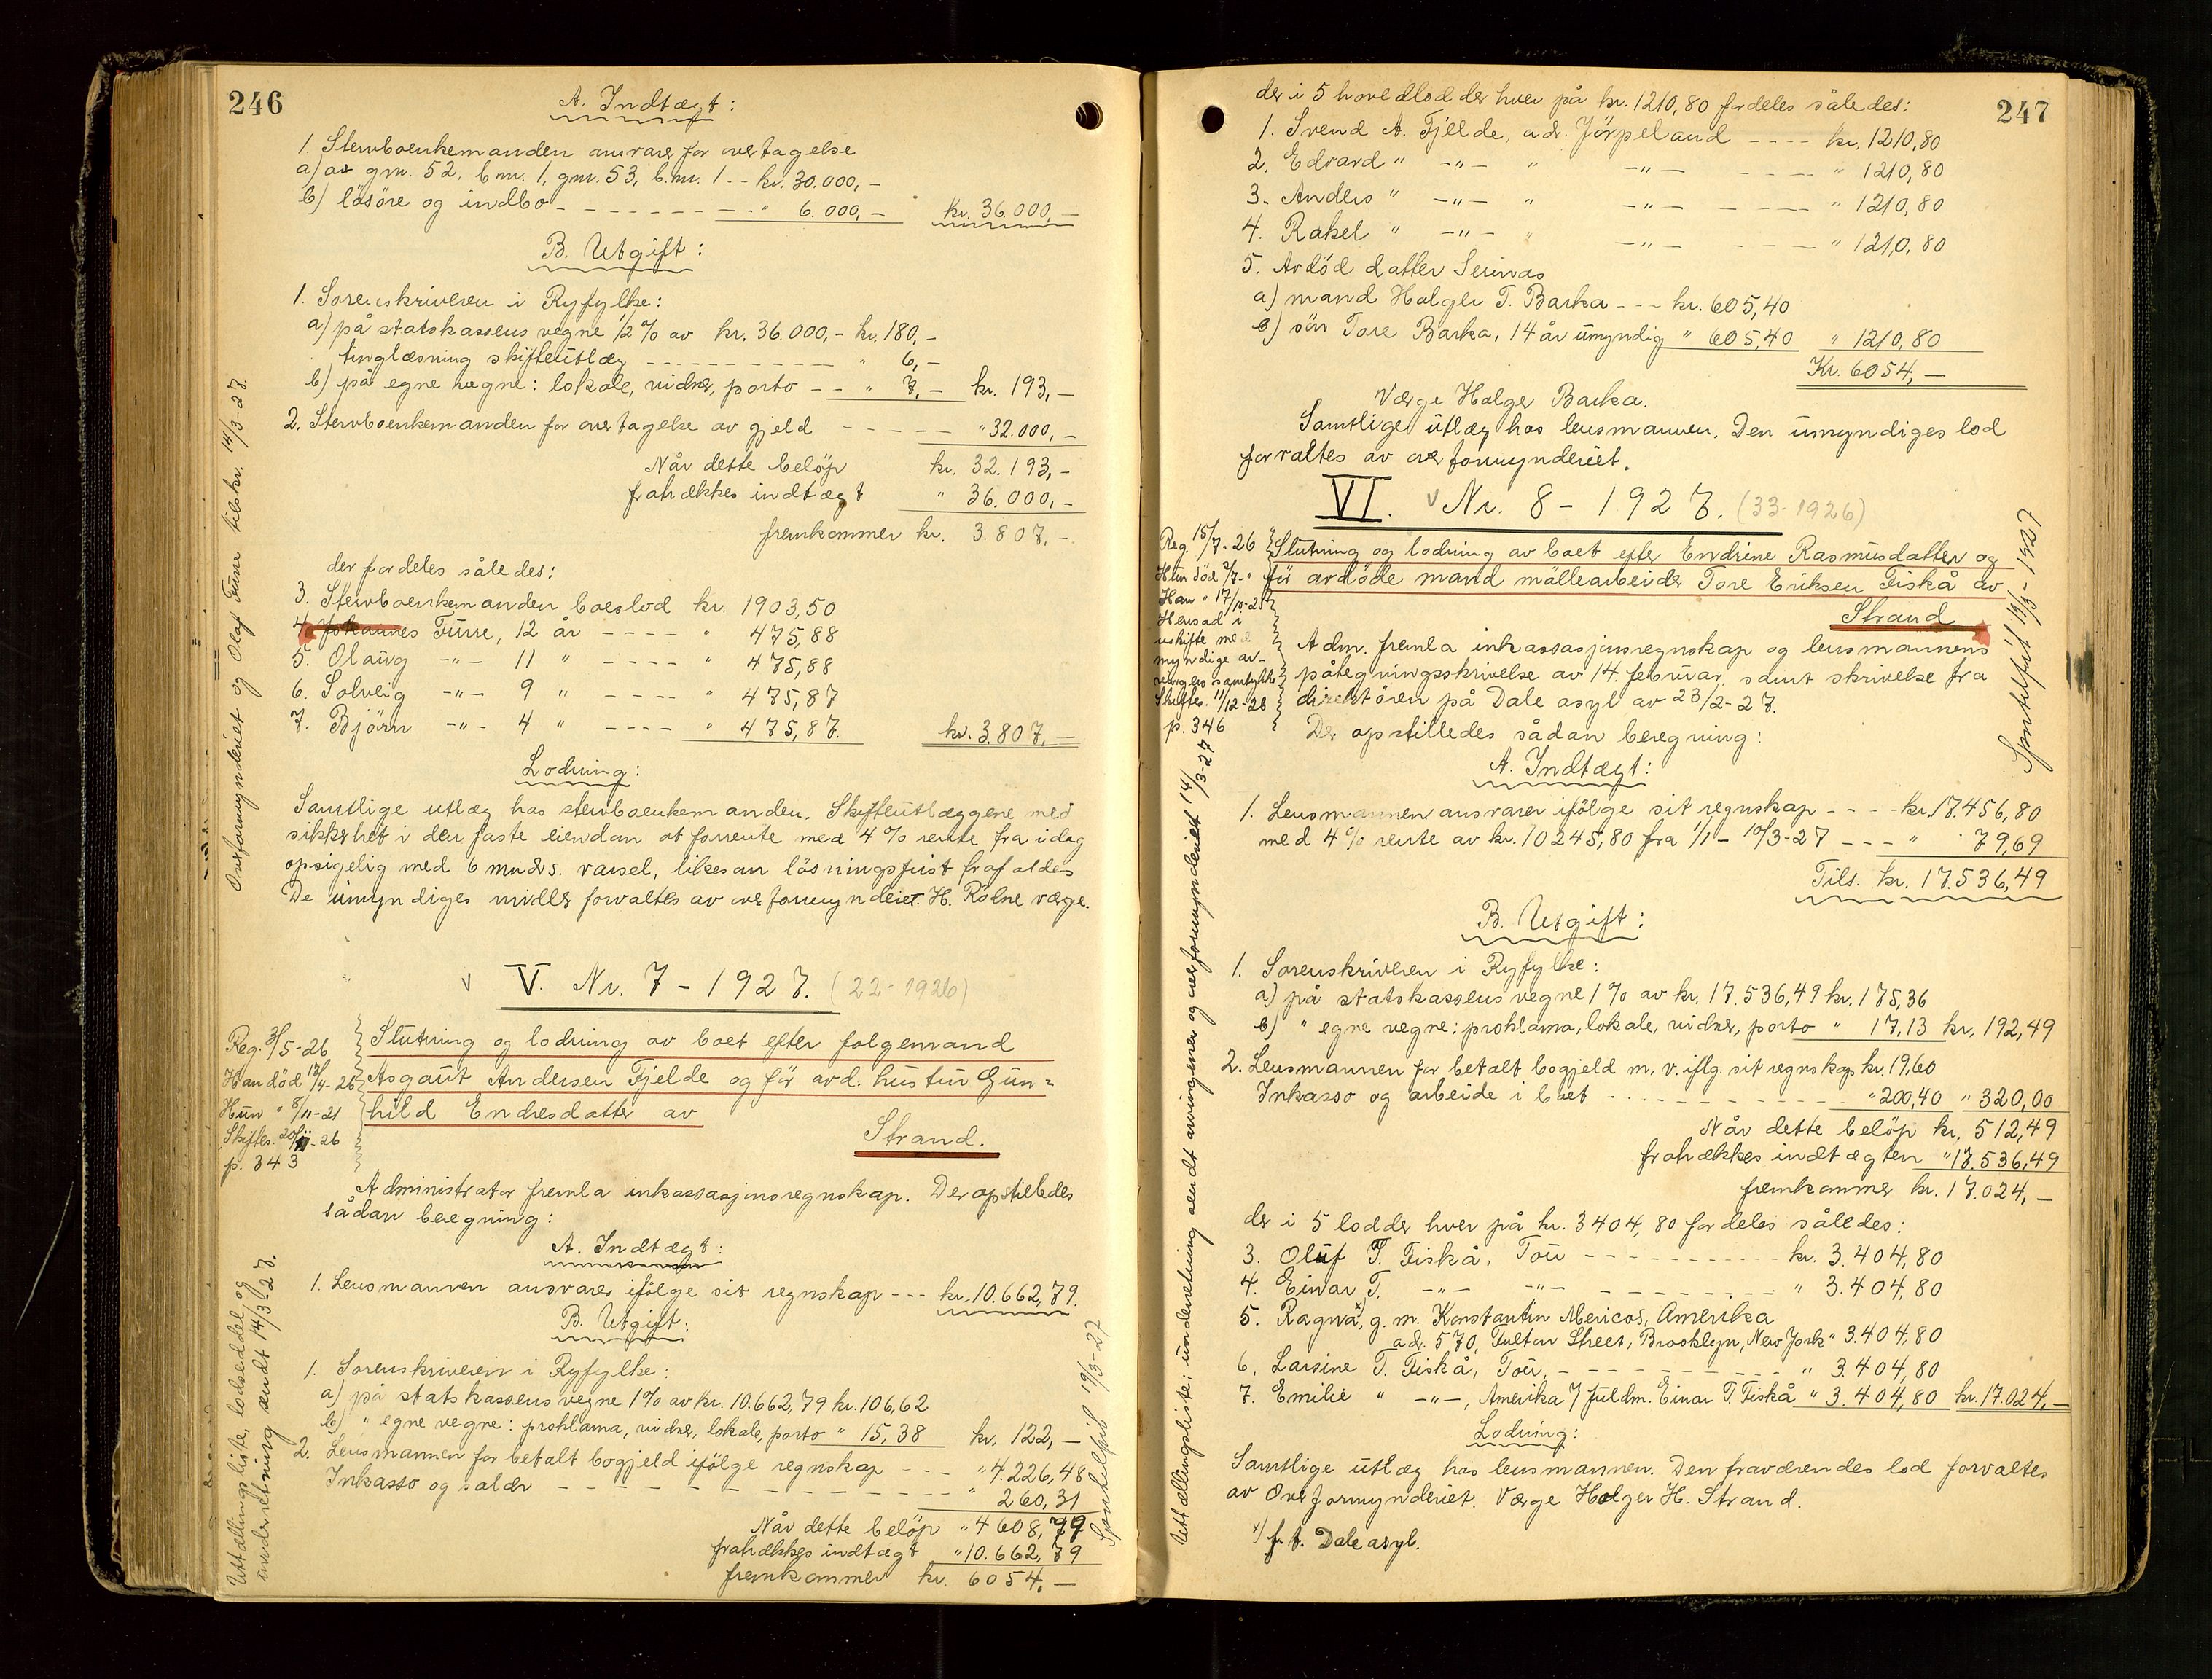 246
A. Indtægt:
1. Stervboenkemanden ansvarer for overtagelse
a) av gnr. 52, b.nr. 1, gnr. 53, b.nr. 1 -- kr. 30.000,-
b) lösöre og indbo - - - - " 6.000,- kr. 36.000,-
B. Utgift:
1. Sorenskriveren i Ryfylke:
a) på statskassens vegne 1/2 % av kr. 36.000,- kr. 180,-
tinglæsning skifteutlæg - - - - " 6,-
b) på egne vegne: lokale, vidner, porto - - " 7,- kr. 193,-
2. Stervboenkemanden for overtagelse av gjeld - - - - " 32.000,-
Når dette belöp kr. 32.193,-
fratrækkes indtægt " 36.000,-
fremkommer kr. 3.807,-
der fordeles således:
3. Stervboenkemanden boeslod kr. 1903,50
4. Johannes Fürre, 12 år - - - - " 475,88
5. Olaug -"- 11 " - - - - " 475,88
6. Solveig -"- 9 " - - - - " 475,87
7. Björn -"- 4 " - - - - " 475,87. kr. 3.807,-
Lodning:
Samtlige utlæg hos stervboenkemanden. Skifteutlæggene med
sikkerhet i den faste eiendom at forrente med 4 % rente fra idag
opsigelig med 6 mnders. varsel, likesom lösningsfrist frafaldes
De umyndiges midler forvaltes av overformynderiet. H. Rölne værge.
Overformynderiet og Olaf Fürre tilskr. 14/3-27.
V. Nr. 7 - 1927. (22-1926)
Reg. 3/5-26
Han död 17/4-26
Hun " 8/11-21
Skiftes. 20/11-26
p. 343
Slutning og lodning av boet efter folgemand
Asgaut Andersen Fjelde og för avd. hustru Gun=
hild Endresdatter av
Strand.
Administrator fremla inkassasjonsregnskap. Der opstilledes
sådan beregning:
A. Indtægt:
1. Lensmannen ansvarer ifölge sit regnskap --- kr. 10.662,79.
B. Utgift:
1. Sorenskriveren i Ryfylke:
a) på statskassens vegne 1 % av kr. 10.662,79 kr. 106,62
b) " egne vegne: proklama, vidner, lokale, porto " 15,38 kr. 122,-
2. Lensmannen for betalt bogjeld ifölge regnskap - - - " 4.226,48
Inkasso og salær - - - - " 260,31
Når dette belöp " 4608,79
fratrækkes indtægt " 10.662,79
fremkommer kr. 6054,-
Uttællingsliste, lodseddel og
underretning sendt 14/3-27.
Sportelfrit 19/3-27
247
der i 5 hovedlodder hver på kr. 1210,80 fordeles således:
1. Svend A. Fjelde, adr. Jörpeland - - - - kr. 1210,80
2. Edvard " -"- " -"- - - - - " 1210,80
3. Anders " -"- " -"- - - - - " 1210,80
4. Rakel " -"- " -"- - - - - " 1210,80
5. Avdöd datter Serinas
a) mand Holger T. Barka - - - kr. 605,40
b) sön Tore Barka, 14 år umyndig " 605,40 " 1210,80
Kr. 6054,-
Værge Holger Barka.
Samtlige utlæg hos lensmannen. Den umyndiges lod
forvaltes av overformynderiet.
VI. Nr. 8 - 1927. (33-1926)
Reg. 15/7-26
Hun död 2/7-"
Han " 17/10-25
Hensad i
uskifte med
myndige ar-
vingers samtykke
Skiftes. 11/12-26
p. 346
Slutning og lodning av boet efter Endrine Rasmusdatter og
för avdöde mand möllearbeider Tore Eriksen Fiskå av
Strand
Adm. fremla inkassasjonsregnskap og lensmannens
påtegningsskrivelse av 14. februar, samt skrivelse fra
direktören på Dale asyl av 23/2-27.
Der opstilledes sådan beregning:
A. Indtægt:
1. Lensmannen ansvarer ifölge sit regnskap - - - - kr. 17.456,80
med 4 % rente av kr. 10245,80 fra 1/1 - 10/3-27 - - - " 79,69
Tils. kr. 17.536,49
B. Utgift:
1. Sorenskriveren i Ryfylke:
a) på statskassens vegne 1 % av kr. 17.536,49 kr. 175,36
b) " egne vegne: proklama, lokale, vidner, porto " 17,13 kr. 192,49
2. Lensmannen for betalt bogjeld m. v. iflg. sit regnskap kr. 119,60
Inkasso og arbeide i boet - - - - " 200,40 " 320,00
Når dette belöp kr. 512,49
fratrækkes indtægten " 17.536,49
fremkommer kr. 17.024,-
der i 5 lodder hver på kr. 3404,80 fordeles således:
3. Oluf T. Fiskå, Tou - - - - kr. 3.404,80
4. Einar T. -"- -"- - - - - " 3.404,80
5. Ragna x), g. m. Konstantin Mericos, Amerika
adr. 570, Fulton Street, Brooklyn, New York " 3.404,80
6. Larsine T. Fiskå, Tou, - - - - " 3.404,80
7. Emilie " -"-, Amerika / fuldm. Einar T. Fiskå " 3.404,80 kr. 17.024,-
Lodning:
Samtlige utlæg hos lensmannen. Den fraværendes lod forvaltes
av Overformynderiet. Værge Holger H. Strand.
x) f. t. Dale asyl.
Uttællingsliste; underretning sendt arvingerne og overformynderiet 14/3-27
Sportelfrit 19/3-1927